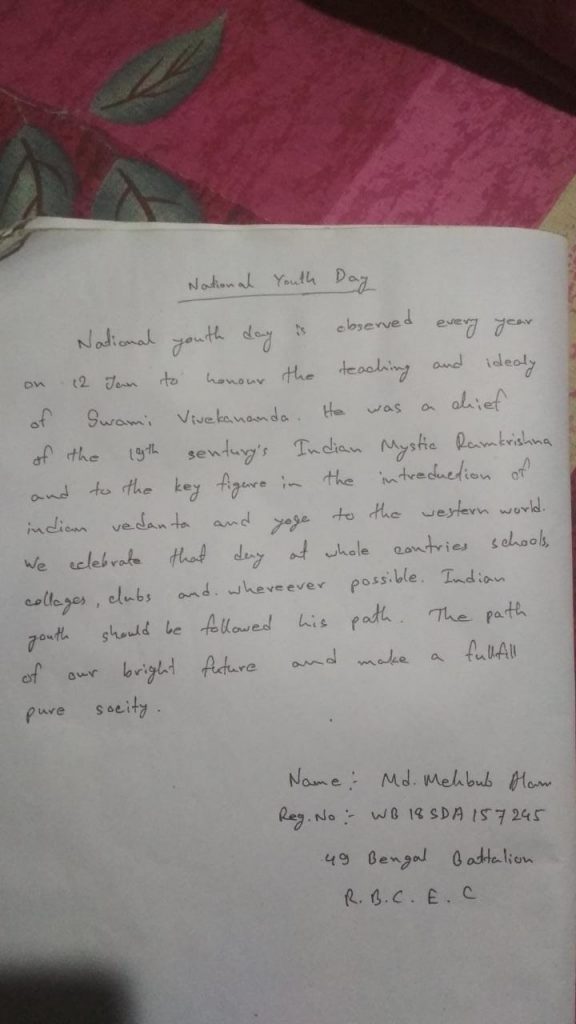 National Youth Day
National youth day is observed every year
on 12 Jan to honour the teaching and idealy
of Swami Vivekananda. He was a chief
of the 19th sentury's Indian Mystic Ramkrishna
and to the key figure in the introduction of
indian vedanta and yoga to the western world.
We celebrate that day at whole contries schools,
collages, clubs and. whereever possible. Indian
youth should be followed his path. The path
of our bright future and make a fullfill
pure socity.
Name :- Md. Mehbub Alam
Reg. No :- WB 18 SDA 157245
49 Bengal Battalion
R. B. C. E. C